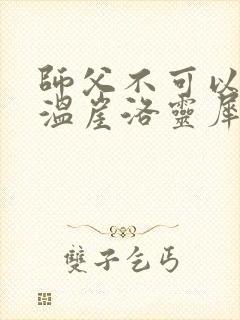 師父不可以
溫崖洛靈犀
雙子乞丐